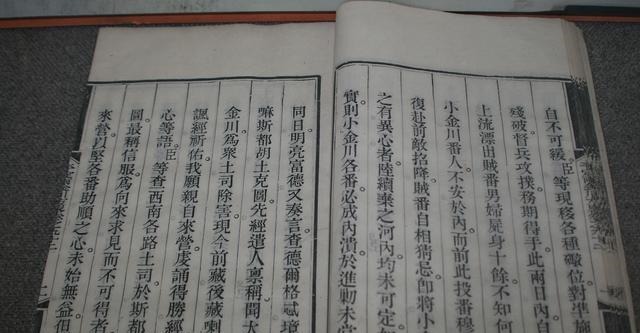 自不可緩臣等現移各種礮位對準施
殘破督兵攻撲務期得手此兩日內
上流漂出賊番男婦屍身十餘不知何
小金川番人不安於內而前此投番穆
復赴前敵招降賊番自相猜忌卽將小
之有異心者陸續棄之河內均未可定
實則小金川各番必成內潰於進勦未
同日明亮富德又奏言查德爾格忒
嘛斯都胡土克圖先經遣人禀稱聞
金川爲衆土司除害現今前藏後藏喇
諷經祈佑我願親自來營虔誦得勝經
心等語臣等查西南各路土司於斯都
圖最稱信服爲何來求見而不可得者
來營以堅各番助順之心未始無益但